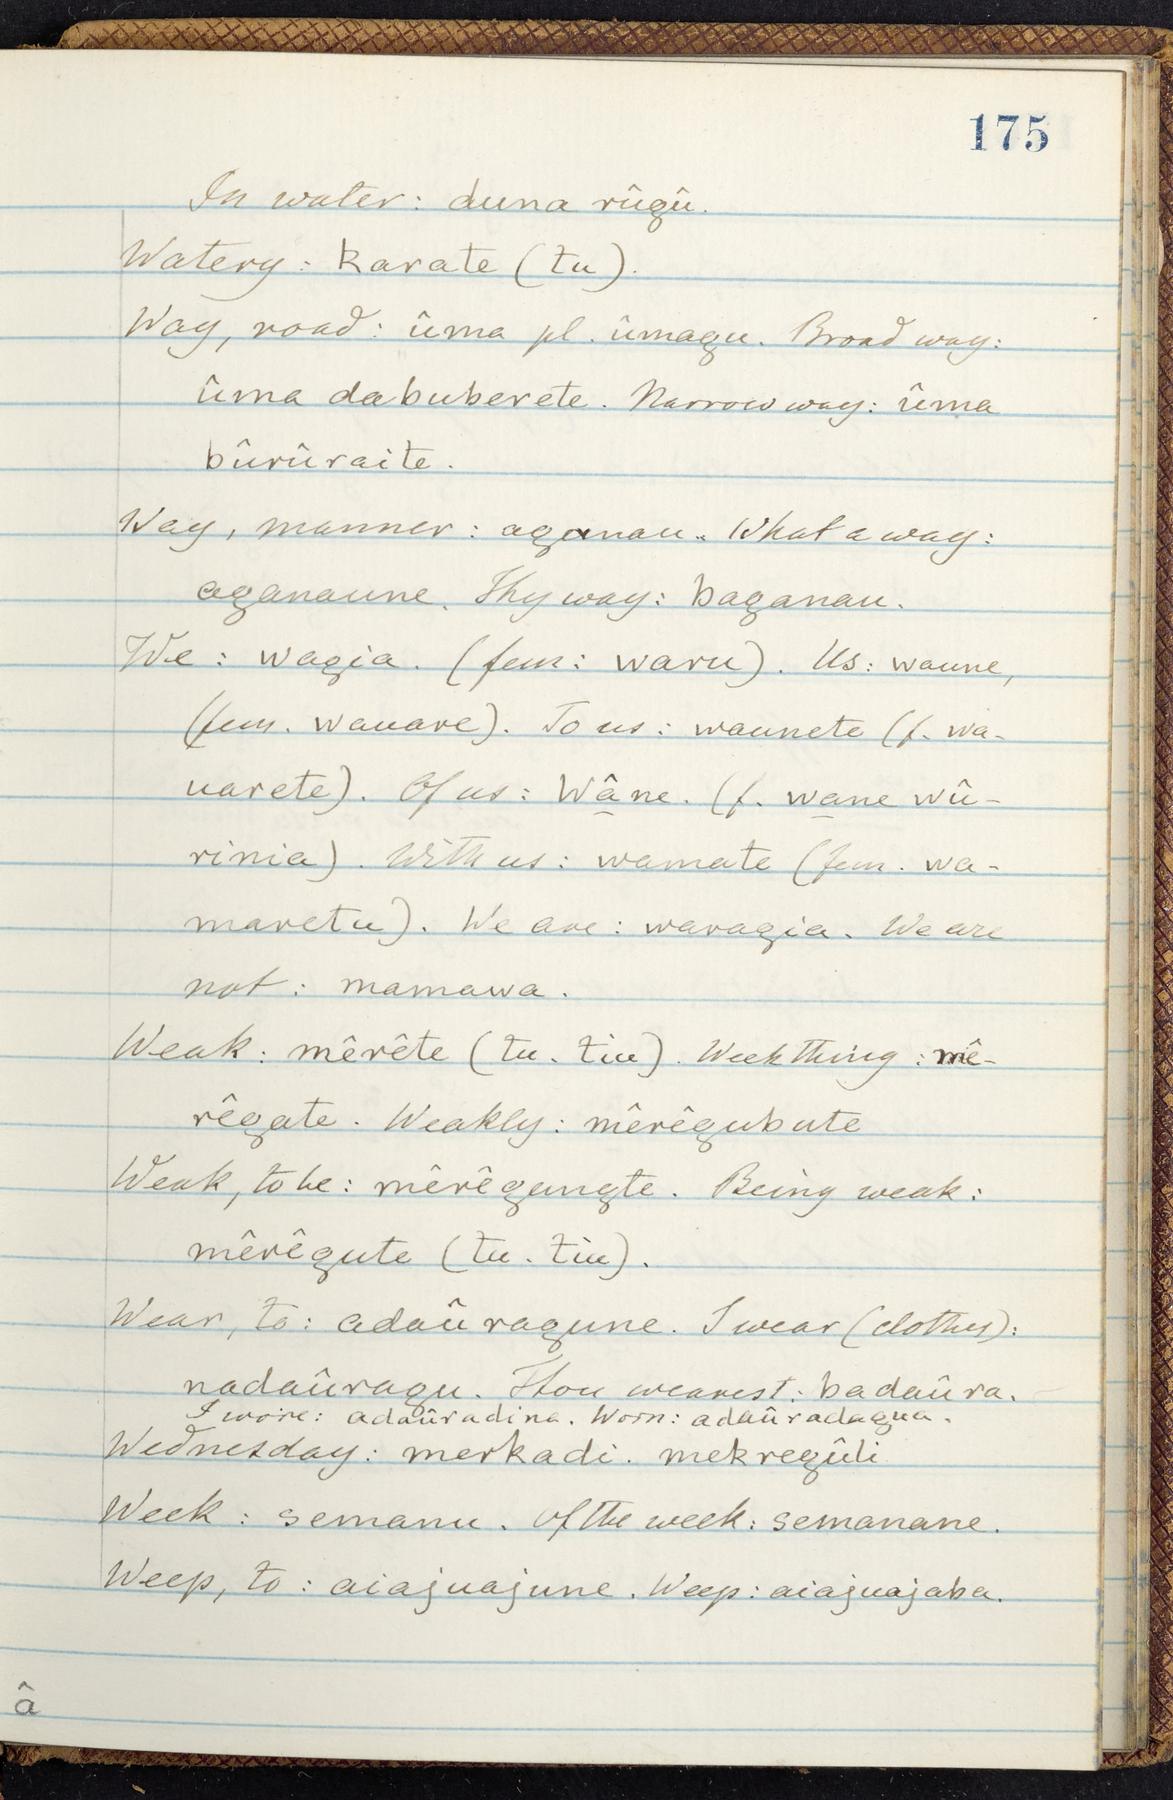 175
In water: duna rûgû.
Watery: karate (tu).
Way, road: ûma pl. ûmagu. Broad way:
ûma dabuberete. Narrow way: ûma
bûrûraite.
Way, manner: aganau. What a way:
aganaune. Thy way: baganau.
We: wagia. (fem: waru). Us: waune,
(fem. wauare). To us: waunete (f. wa-
uarete). Of us: Wâne. (f. wane wû-
rinia). With us: wamate (fem. wa-
maretu). We are: waragia. We are
not: mamawa.
Weak: mêrête (tu. tiu). Weak thing: mê-
rêgate. Weakly: mêrêgubute
Weak, to be: mêrêgungte. Being weak:
mêrêgute (tu. tiu).
Wear, to: adaûragune. I wear (clothes):
nadaûragu. Thou wearest: badaûra.
I wore: adaûradina. Worn: adaûradagua.
Wednesday: merkadi. mekregûli
Week: semanu. Of the week: semanane.
Weep, to: aiajuajune. Weep: aiajuajaba.
â